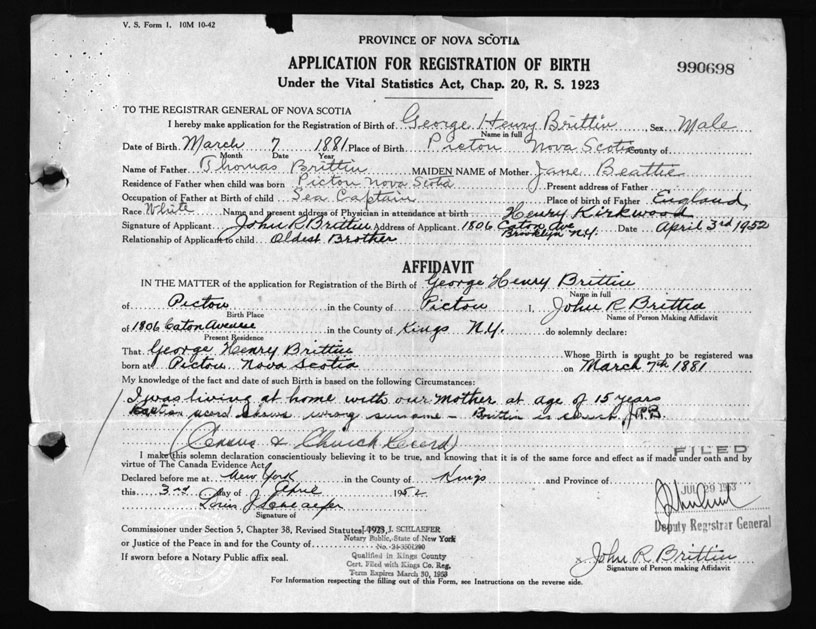 V. S. Form 1. 10M 10-42
PROVINCE OF NOVA SCOTIA
APPLICATION FOR REGISTRATION OF BIRTH
990698
Under the Vital Statistics Act, Chap. 20, R. S. 1923
TO THE REGISTRAR GENERAL OF NOVA SCOTIA
I hereby make application for the Registration of Birth of George Henry Brittin, Sex Male
Name in full
Date of Birth March 7 1881 Place of Birth Pictou Nova Scotia County of
Month Date Year
Name of Father Thomas Brittin MAIDEN NAME of Mother Jane Beattie
Residence of Father when child was born Pictou Nova Scotia Present address of Father
Occupation of Father at Birth of child Sea Captain Place of birth of Father England
Race White Name and present address of Physician in attendance at birth Henry Kirkwood
Signature of Applicant John R Brittin Address of Applicant 1806 Eaton Ave Brooklyn N.Y. Date April 3rd 1952
Relationship of Applicant to child Oldest Brother
AFFIDAVIT
IN THE MATTER of the application for Registration of the Birth of George Henry Brittin
Name in full
of Pictou in the County of Pictou I, John R Brittin
Birth Place Name of Person Making Affidavit
of 1806 Eaton Avenue in the County of Kings N.Y. do solemnly declare:
Present Residence
That George Henry Brittin Whose Birth is sought to be registered was
born at Pictou Nova Scotia on March 7th 1881
My knowledge of the fact and date of such Birth is based on the following Circumstances:
I was living at home with our mother at age of 15 years
record shows wrong surname - Brittin is correct J.R.B.
(Census & Church Record)
I make this solemn declaration conscientiously believing it to be true, and knowing that it is of the same force and effect as if made under oath and by
virtue of The Canada Evidence Act.
FILED
Declared before me at New York in the County of Kings and Province of
JUL 29 1953
this 3rd day of April 1952
Louis J Schlaefer
Signature of
Deputy Registrar General
Commissioner under Section 5, Chapter 38, Revised Statutes, 1923,
LOUIS J. SCHLAEFER
Notary Public, State of New York
or Justice of the Peace in and for County of
Qualified in Kings County
If sworn before a Notary Public affix seal.
Cert. Filed with Kings Co. Reg.
Term Expires March 30, 1953
x John R Brittin
Signature of Person making Affidavit
For Information respecting the filling out of this Form, see Instructions on the reverse side.